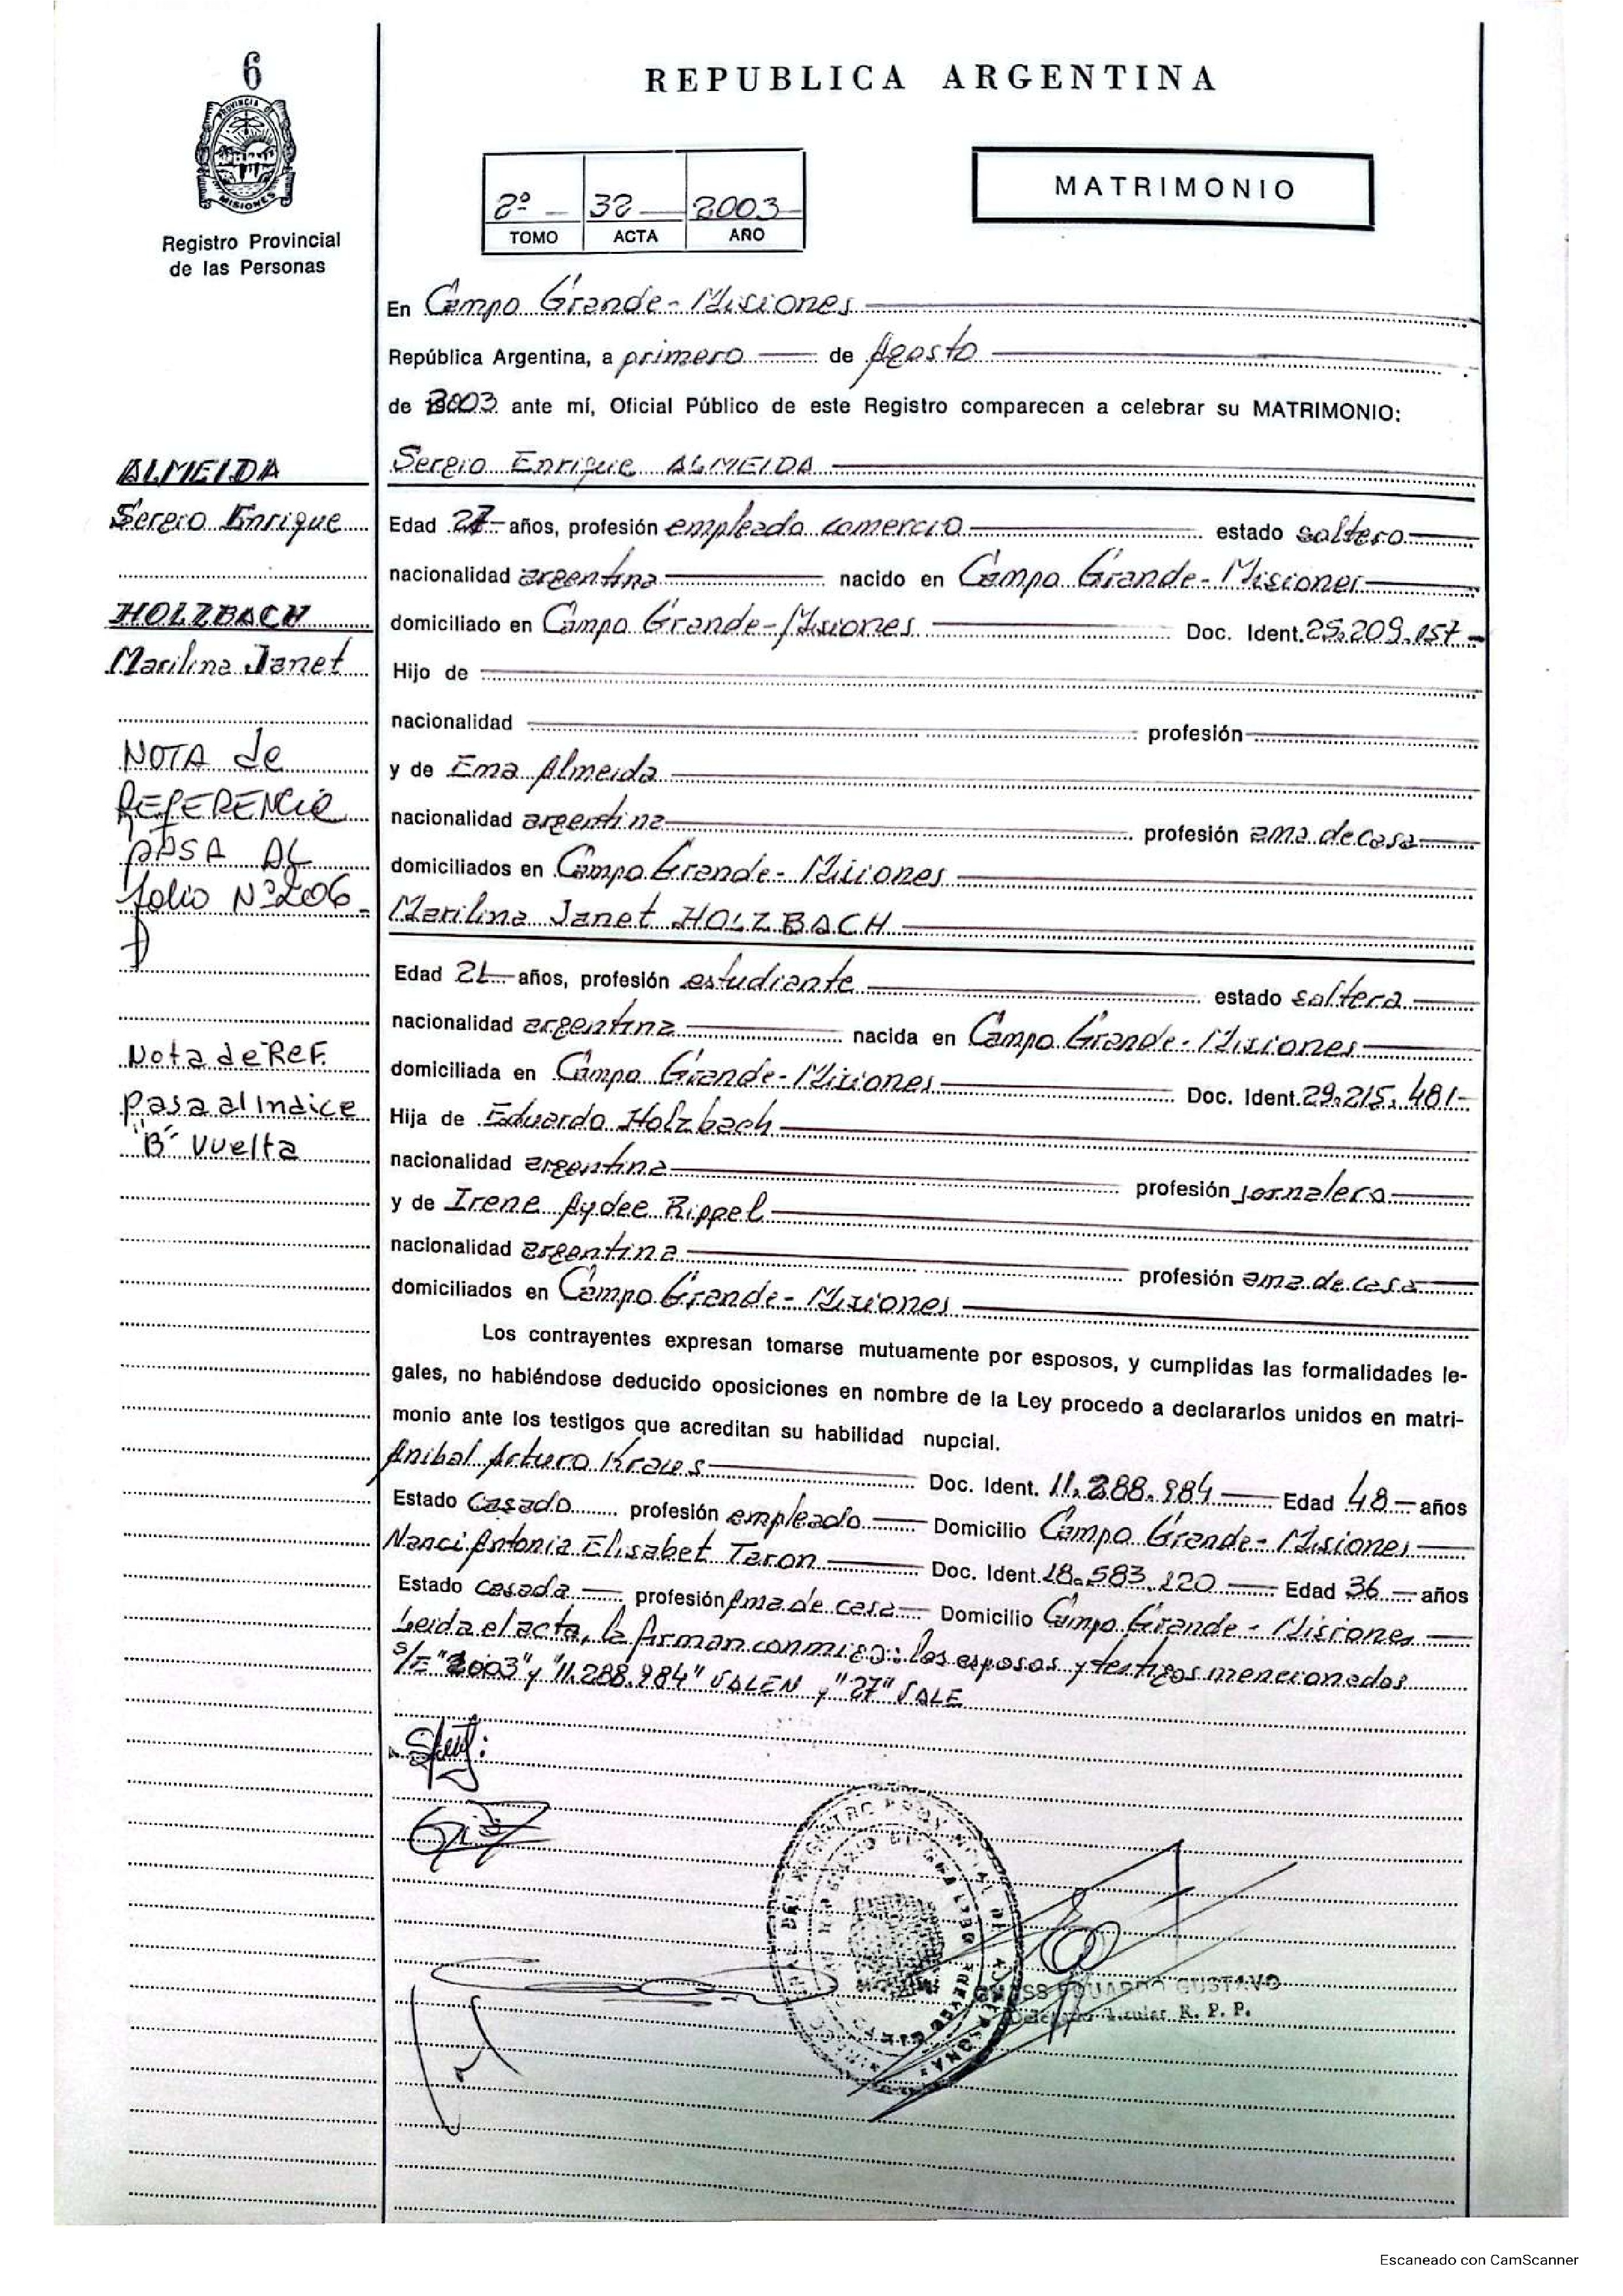 6
PROVINCIA DE
MISIONES
Registro Provincial
de las Personas
REPUBLICA ARGENTINA
2º 32 2003
TOMO ACTA AÑO
MATRIMONIO
En Campo Grande - Misiones
República Argentina, a primero de Agosto
de 2003 ante mí, Oficial Público de este Registro comparecen a celebrar su MATRIMONIO:
ALMEIDA
Sergio Enrique
HOLZBACH
Marilina Janet
NOTA de
REFERENCIA
PASA AL
folio Nº 206
Nota de Ref.
pasa al Indice
"B" Vuelta
Sergio Enrique ALMEIDA
Edad 27 años, profesión empleado comercio estado soltero
nacionalidad argentina nacido en Campo Grande - Misiones
domiciliado en Campo Grande - Misiones Doc. Ident. 25.209.157
Hijo de
nacionalidad profesión
y de Ema Almeida
nacionalidad argentina profesión ama de casa
domiciliados en Campo Grande - Misiones
Marilina Janet HOLZBACH
Edad 21 años, profesión estudiante estado soltera
nacionalidad argentina nacida en Campo Grande - Misiones
domiciliada en Campo Grande - Misiones Doc. Ident. 29.215.481-
Hija de Eduardo Holzbach
nacionalidad argentina profesión jornalero
y de Irene Aydee Rippel
nacionalidad argentina profesión ama de casa
domiciliados en Campo Grande - Misiones
Los contrayentes expresan tomarse mutuamente por esposos, y cumplidas las formalidades le-
gales, no habiéndose deducido oposiciones en nombre de la Ley procedo a declararlos unidos en matri-
monio ante los testigos que acreditan su habilidad nupcial.
Anibal Arturo Kraus Doc. Ident. 11.288.984 Edad 48 años
Estado Casado profesión empleado Domicilio Campo Grande - Misiones
Nanci Antonia Elisabet Taron Doc. Ident. 18.583.120 Edad 36 años
Estado casada profesión Ama de casa Domicilio Campo Grande - Misiones
Leida el acta, la firman conmigo: los esposos y testigos mencionados
S/E "2003" y "11.288.984" VALEN y "27" VALE
EDUARDO GUSTAVO
Delegado Titular R. P. P.
Escaneado con CamScanner